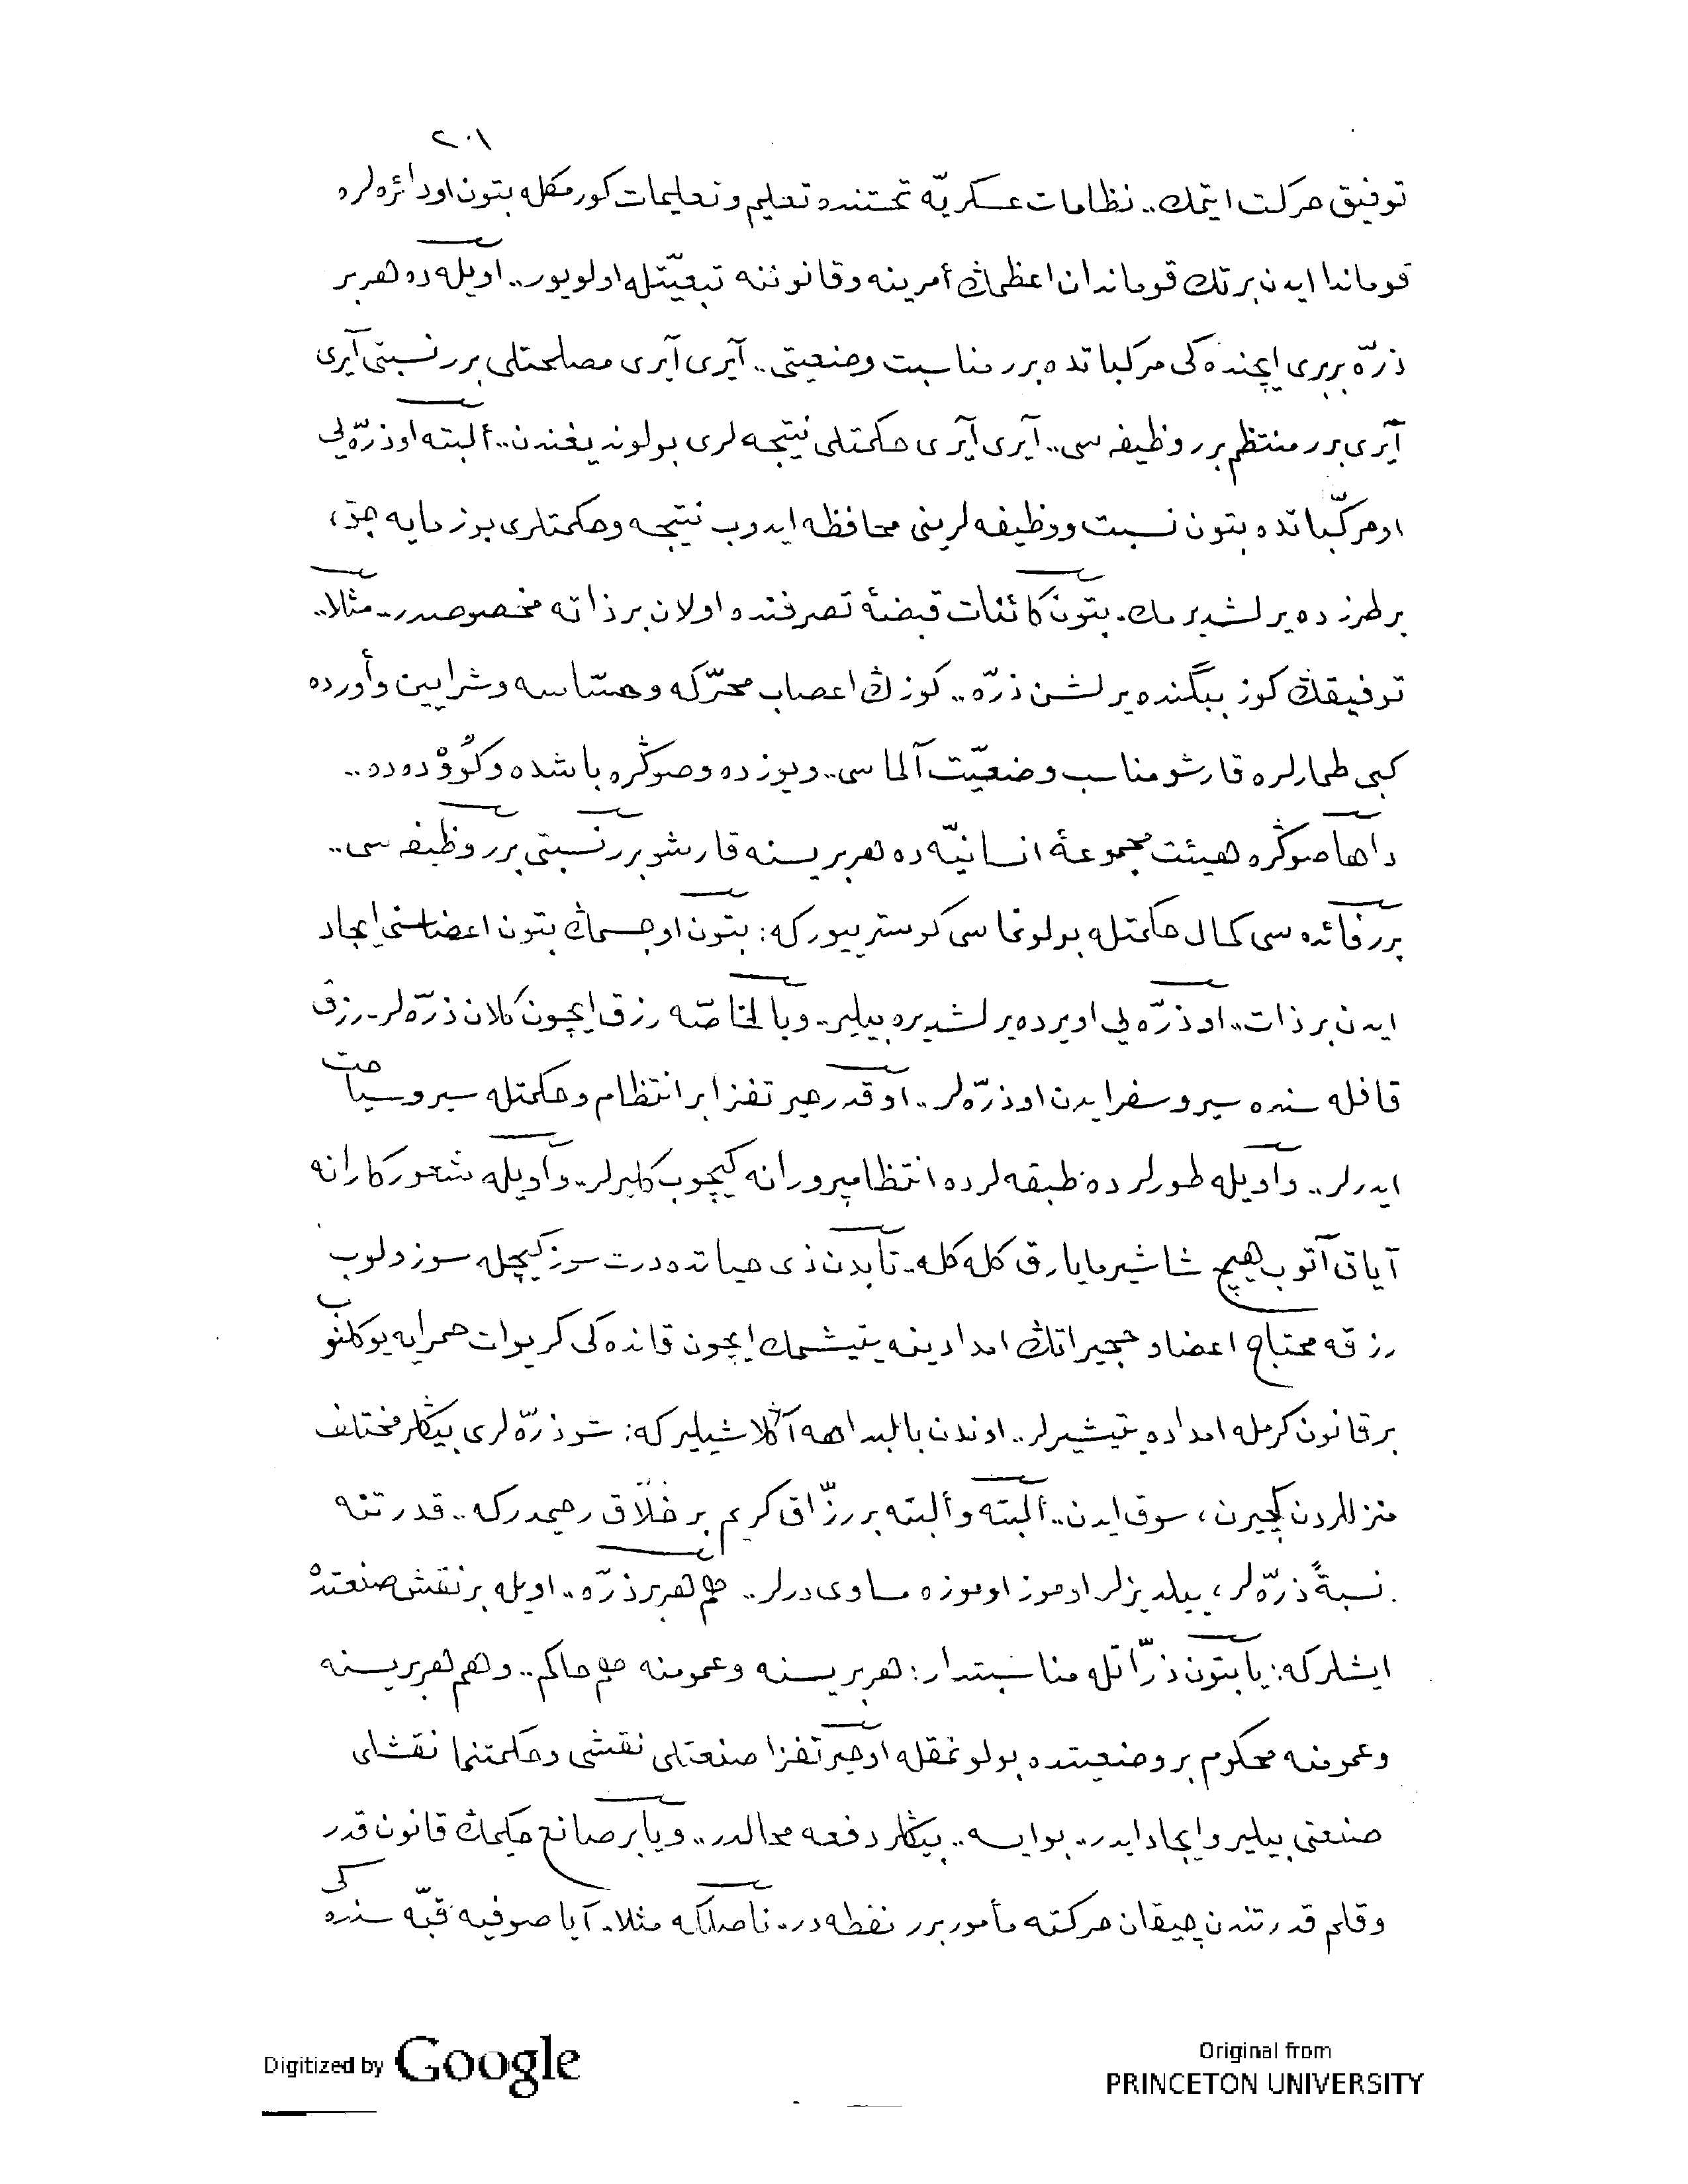 ٢٠١
توفيق حركت ايتمك.. نظامات عسكريّه تحتنده تعليم و تعليمات كورمكله بتون او دائره‌لره
قوماندا ايدن بر تك قوماندان اعظمڭ أمرينه و قانوننه تبعيّتله اولويور.. اويله ده هر بر
ذرّه بربرى ايچنده‌كى مركباتده برر مناسبت وضعيتى.. آيرى آيرى مصلحتلى برر نسبتى آيرى
آيرى برر منتظم برر وظيفه سى.. آيرى آيرى حكمتلى نتيجه لرى بولونديغندن.. ألبته او ذرّه‌يى
او مركّباتده بتون نسبت و وظيفه لرينى محافظه ايدوب نتيجه و حكمتلرى بوزمايه جق،
بر طرزده يرلشديرمك. بتون كائنات قبضهٔ تصرفنده اولان بر ذاته مخصوصدر.. مثلا..
توفيقڭ كوز ببگنده يرلشن ذرّه.. كوزڭ اعصاب محرّكه و حسّاسه و شرايين و أورده
كبى طمارلره قارشو مناسب وضعيّت آلماسى.. و يوزده و صوڭره باشده و كُووْده ده..
داها صوڭره هيئت مجموعهٔ انسانيّه ده هر بريسنه قارشو برر نسبتى برر وظيفه سى..
برر فائده سى كمال حكمتله بولونماسى كوسترييور كه: بتون او جسمڭ بتون اعضاسنى ايجاد
ايدن بر ذات.. او ذرّه يى او يرده يرلشديره بيلير.. و بالخاصّه رزق ايچون كلان ذرّه لر.. رزق
قافله سنده سير و سفر ايدن او ذرّه لر.. او قدر حيرتفزا بر انتظام و حكمتله سير و سياحت
ايدرلر.. و اويله طورلرده طبقه لرده انتظامپرورانه كيچوب كليرلر.. و اويله شعوركارانه
آياق آتوب هيچ شاشيرمايارق كله كله.. تا بدن ذى حياتده درت سوزكيچله سوزولوب
رزقه محتاج اعضا و حجيراتڭ امدادينه يتيشمك ايچون قانده كى كريوات حمرايه يوكلنوب
بر قانون كرمله امداده يتيشيرلر.. اوندن بالبداهه آڭلاشيلير كه: شو ذرّه لرى بيڭلر مختلف
منزللردن كچيرن، سوق ايدن.. ألبته و ألبته بر رزّاق كريم بر خلّاق رحيمدر كه.. قدرتنه
نسبةً ذرّه لر، ييلديزلر اوموز اوموزه مساوى درلر.. هم هر بر ذرّه.. اويله بر نقش صنعتده
ايشلر كه: يا بتون ذرّاتله مناسبتدار: هر بريسنه و عمومنه هم حاكم.. و هم هر بريسنه
و عمومنه محكوم بر وضعيتده بولونمقله او حيرتفزا صنعتلى نقشى و حكمتنما نقشلى
صنعتى بيلير و ايجاد ايدر.. بو ايسه.. بيڭلر دفعه محالدر.. و يا بر صانع حكيمڭ قانون قدر
و قلم قدرتندن چيقان حركته مأمور برر نقطه در.. ناصلكه مثلا.. آيا صوفيه قبّه سنده كى
Digitized by Google
Original from
PRINCETON UNIVERSITY